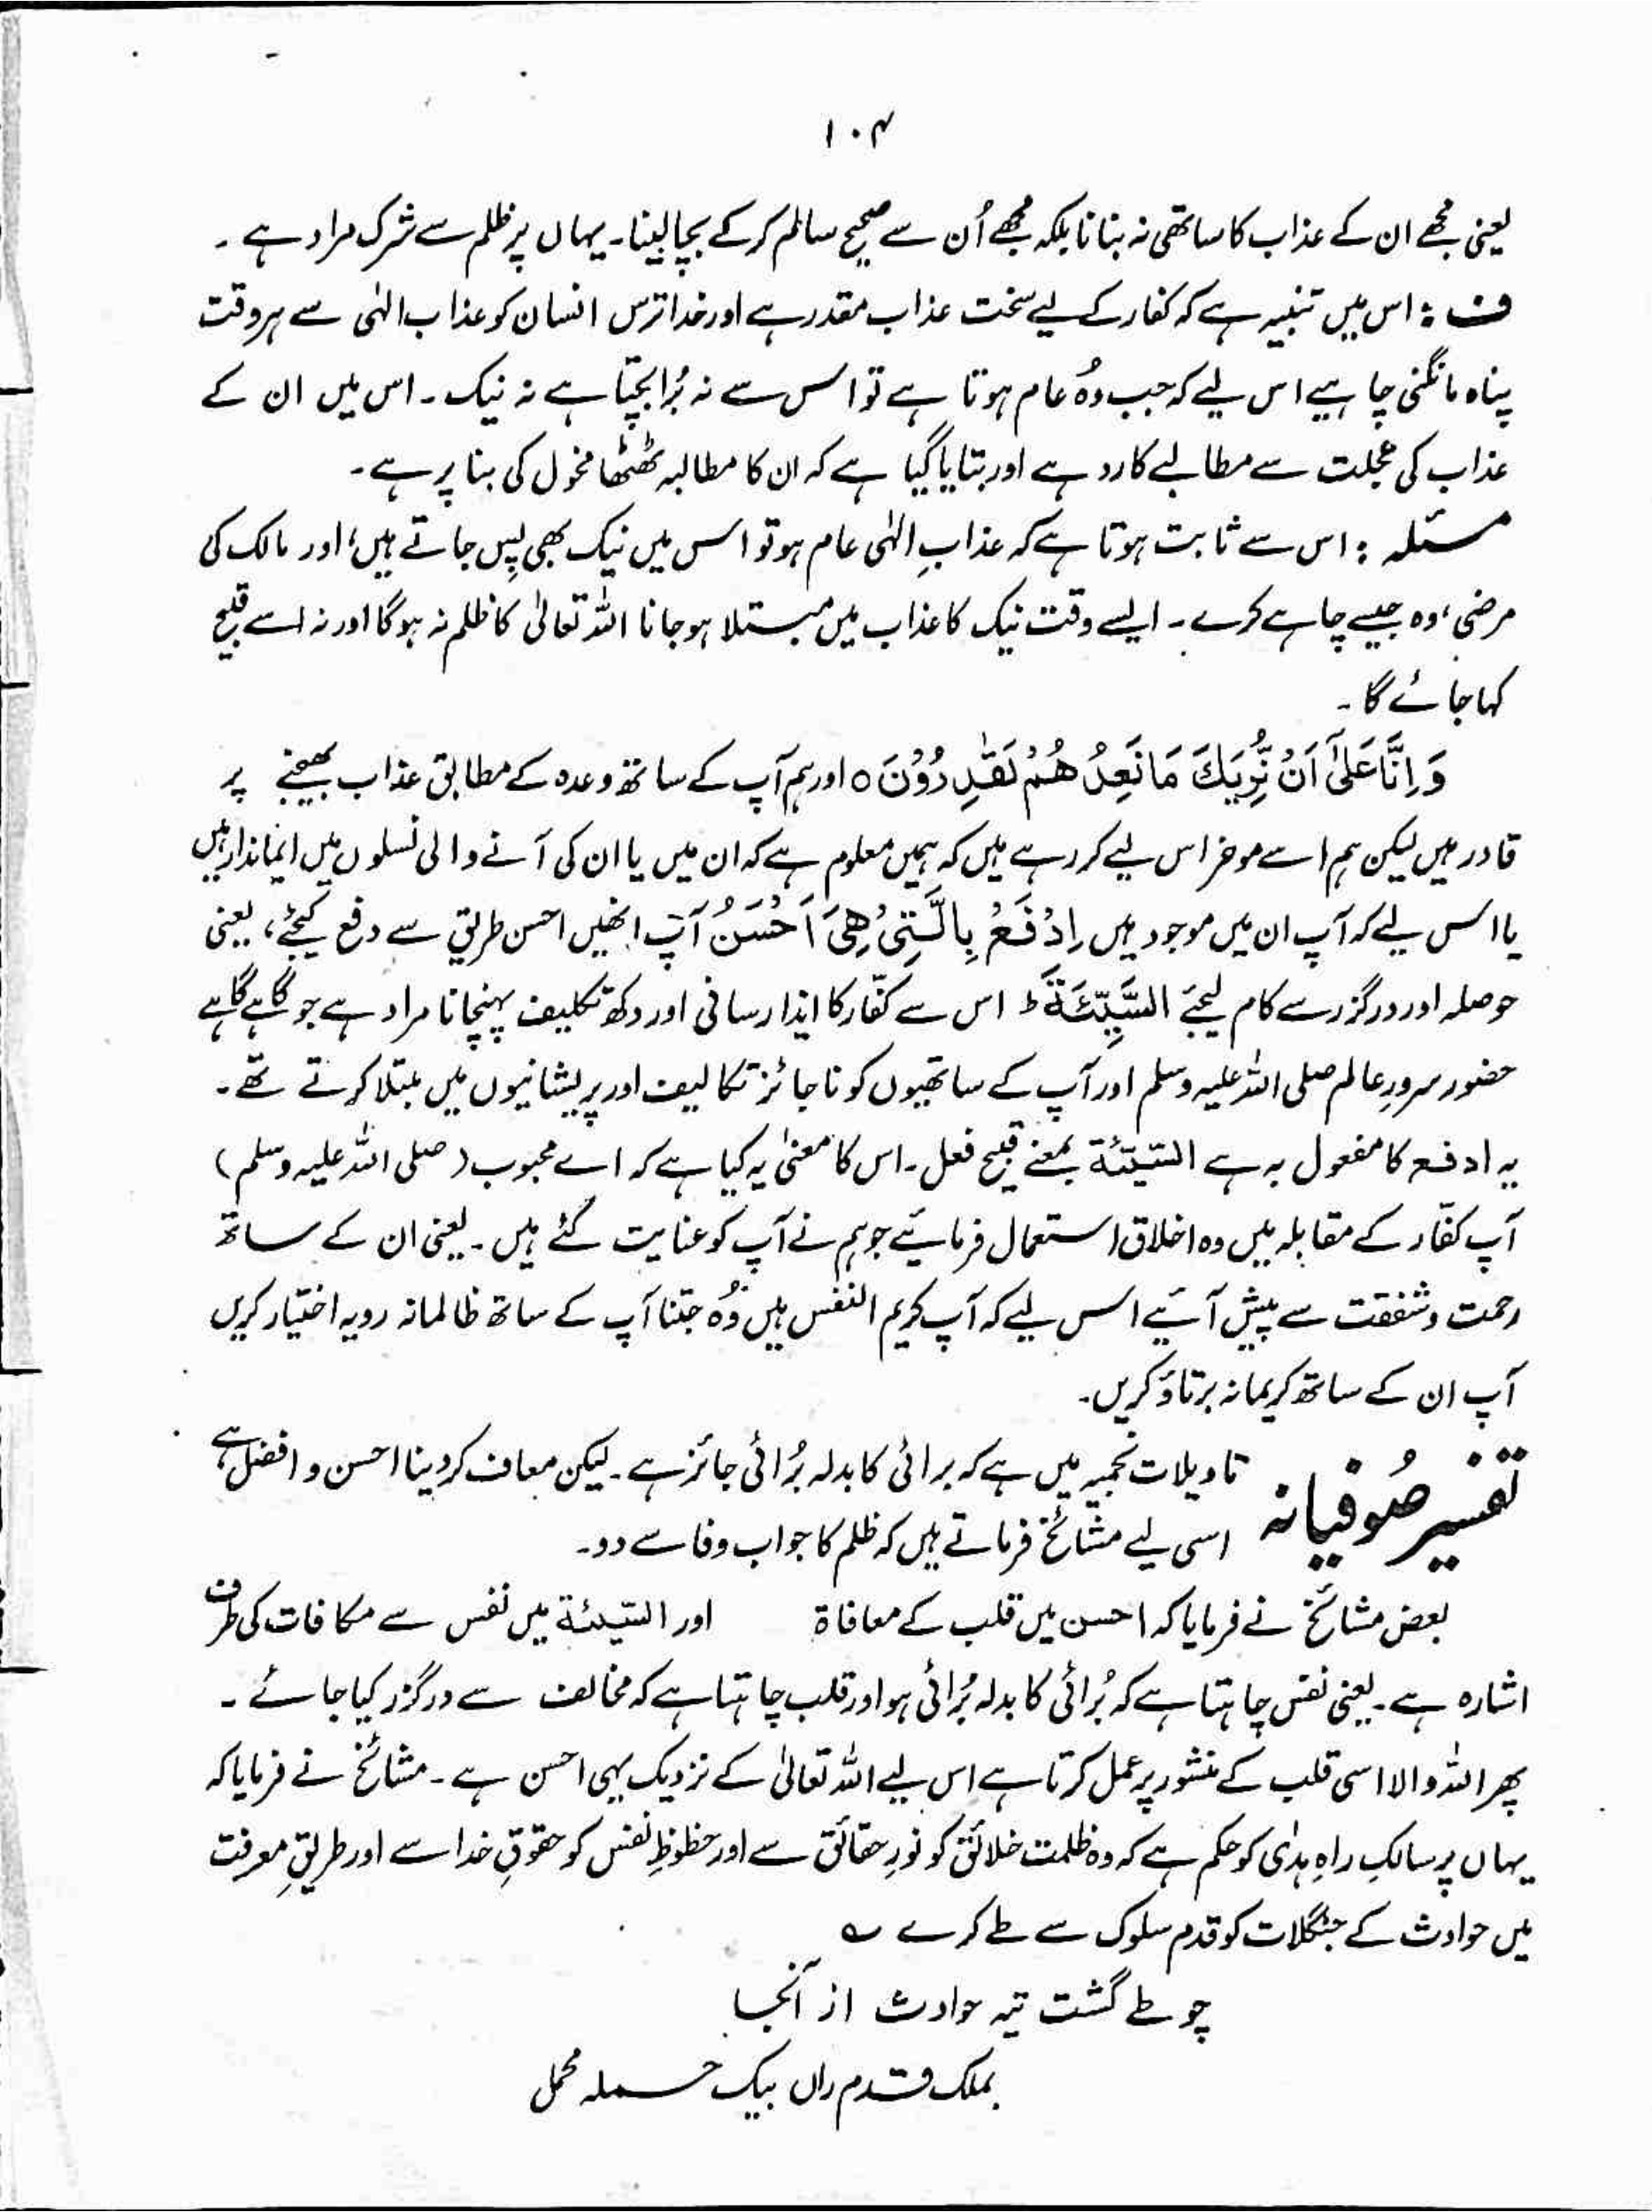 ۱۰۴
یعنی مجھے ان کے عذاب کا ساتھی نہ بنانا بلکہ مجھے اُن سے صحیح سالم کرکے بچا لینا۔ یہاں پر ظلم سے شرک مراد ہے۔
ف : اس میں تنبیہ ہے کہ کفار کے لیے سخت عذاب مقدر ہے اور خدا ترس انسان کو عذاب الٰہی سے ہر وقت
پناہ مانگنی چاہیے اس لیے کہ جب وُہ عام ہوتا ہے تو اس سے نہ بُرا بچتا ہے نہ نیک۔ اس میں ان کے
عذاب کی عجلت سے مطالبے کا رد ہے اور بتایا گیا ہے کہ ان کا مطالبہ ٹھٹھا مخول کی بنا پر ہے۔
مسئلہ : اس سے ثابت ہوتا ہے کہ عذابِ الٰہی عام ہو تو اس میں نیک بھی پِس جاتے ہیں، اور مالک کی
مرضی، وہ جیسے چاہے کرے۔ ایسے وقت نیک کا عذاب میں مبتلا ہو جانا اللہ تعالیٰ کا ظلم نہ ہوگا اور نہ اسے قبیح
کہا جائے گا۔
وَ اِنَّا عَلٰۤی اَنْ نُّرِیَكَ مَا نَعِدُهُمْ لَقٰدِرُوْنَ ہ اور ہم آپ کے ساتھ وعدہ کے مطابق عذاب بھیجنے پر
قادر ہیں لیکن ہم اسے موخر اس لیے کر رہے ہیں کہ ہمیں معلوم ہے کہ ان میں یا ان کی آنے والی نسلوں میں ایماندار ہیں
یا اس لیے کہ آپ ان میں موجود ہیں اِدْفَعْ بِالَّتِیْ هِیَ اَحْسَنُ آپ انھیں احسن طریق سے دفع کیجئے، یعنی
حوصلہ اور درگزر سے کام لیجئے السَّیِّئَةَ ط اس سے کفّار کا ایذا رسانی اور دکھ تکلیف پہنچانا مراد ہے جو گاہے گاہے
حضور سرورِ عالم صلی اللہ علیہ وسلم اور آپ کے ساتھیوں کو ناجائز تکالیف اور پریشانیوں میں مبتلا کرتے تھے۔
یہ ادفع کا مفعول بہ ہے السّیّئة بمعنے قبیح فعل۔ اس کا معنیٰ یہ کیا ہے کہ اے محبوب (صلی اللہ علیہ وسلم)
آپ کفّار کے مقابلہ میں وہ اخلاق استعمال فرمائیے جو ہم نے آپ کو عنایت کئے ہیں۔ یعنی ان کے ساتھ
رحمت و شفقت سے پیش آئیے اس لیے کہ آپ کریم النفس ہیں وُہ جتنا آپ کے ساتھ ظالمانہ رویہ اختیار کریں
آپ ان کے ساتھ کریمانہ برتاؤ کریں۔
تفسیر صُوفیانہ تاویلات نجمیہ میں ہے کہ برائی کا بدلہ بُرائی جائز ہے۔ لیکن معاف کر دینا احسن و افضل ہے
اسی لیے مشائخ فرماتے ہیں کہ ظلم کا جواب وفا سے دو۔
بعض مشائخ نے فرمایا کہ احسن میں قلب کے معافاة اور السّیئة میں نفس سے مکافات کی طرف
اشارہ ہے۔ یعنی نفس چاہتا ہے کہ بُرائی کا بدلہ بُرائی ہو اور قلب چاہتا ہے کہ مخالف سے درگزر کیا جائے۔
پھر اللہ والا اسی قلب کے منشور پر عمل کرتا ہے اس لیے اللہ تعالیٰ کے نزدیک یہی احسن ہے۔ مشائخ نے فرمایا کہ
یہاں پر سالکِ راہِ ہدٰی کو حکم ہے کہ وہ ظلمت خلائق کو نورِ حقائق سے اور حظوظِ نفس کو حقوقِ خدا سے اور طریقِ معرفت
میں حوادث کے جنگلات کو قدم سلوک سے طے کرے ؎
چو طے گشت تیہ حوادث از آنجا
بملک قدم راں بیک حملہ محمل